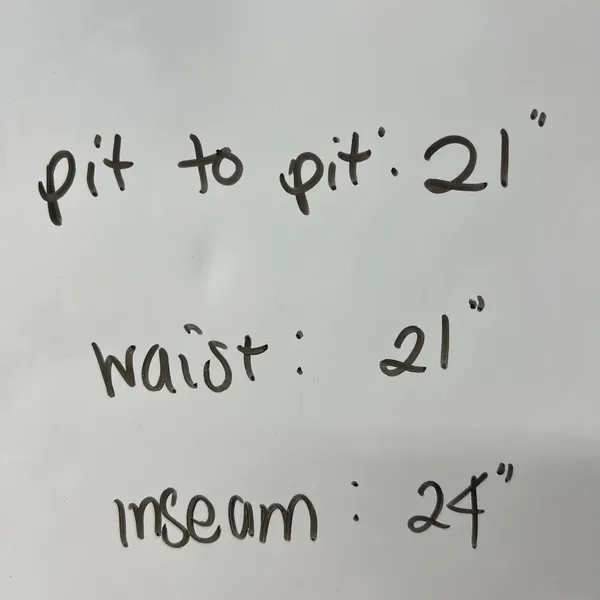 pit to pit: 21"
waist: 21"
inseam: 24"